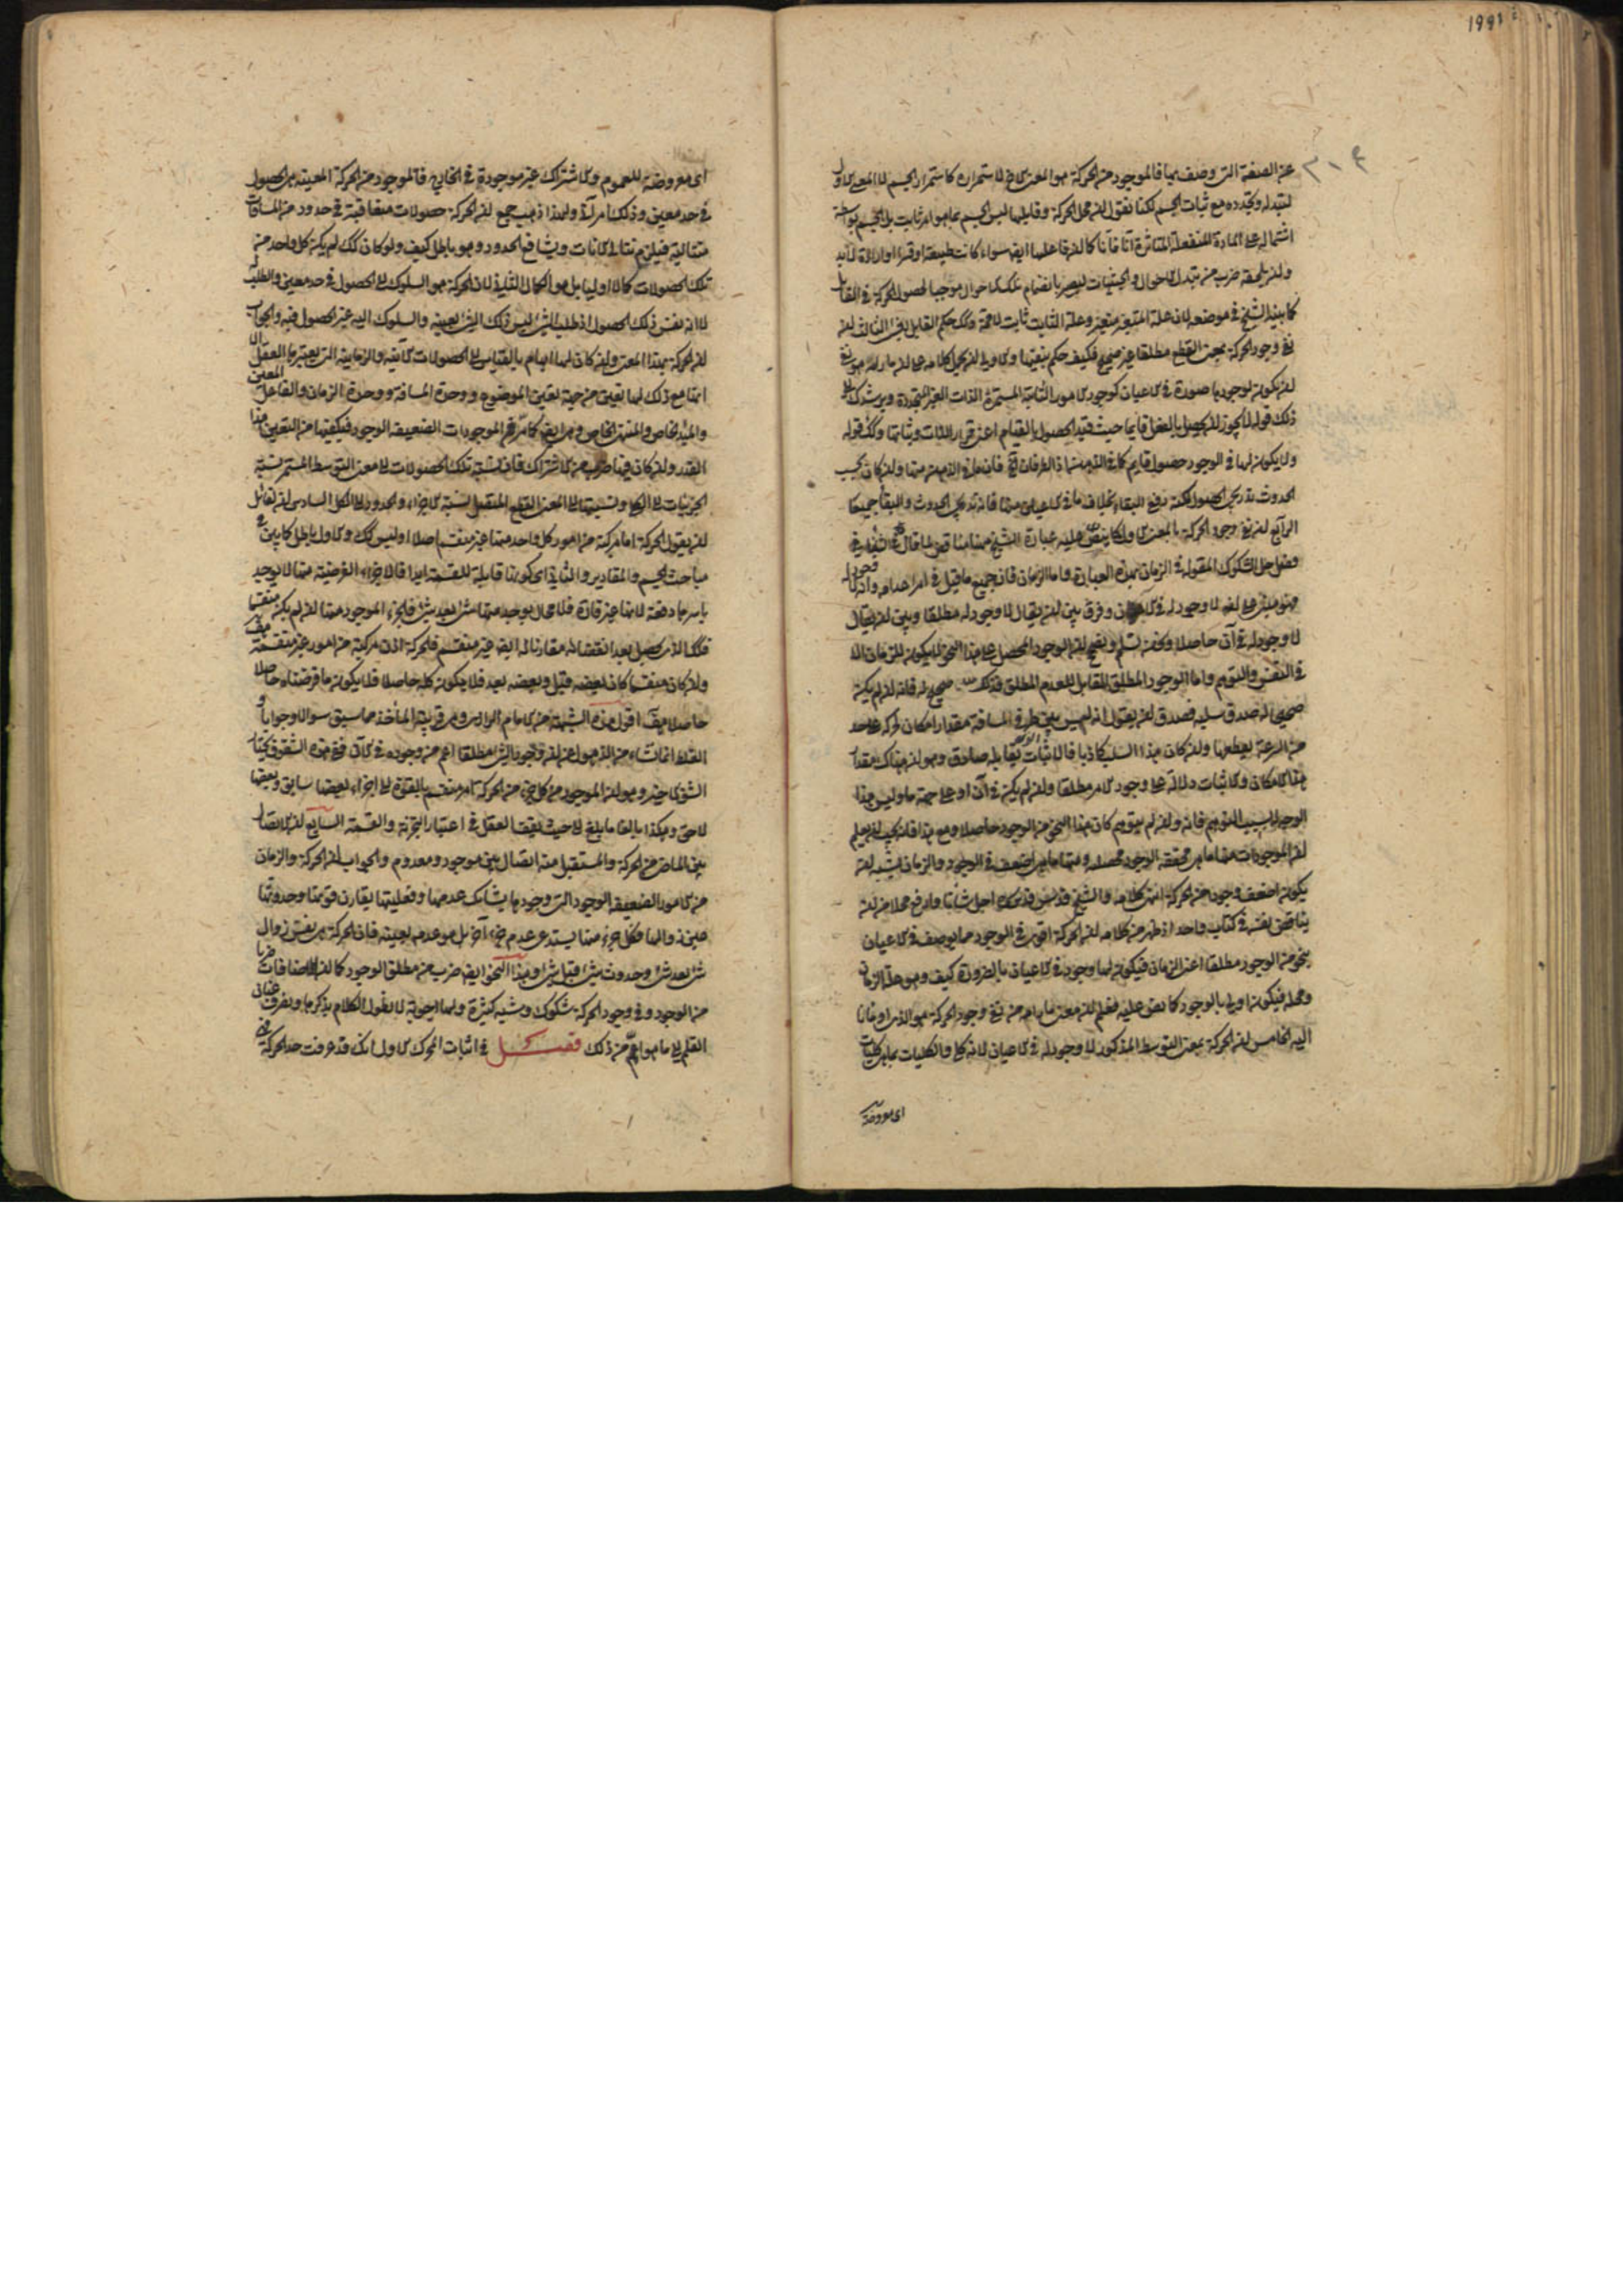 ١٩٩١
٣٠٤
عن الصفة التى وصف بها فالموجود من الحركة هو المعنى الاخر لاستمراره كاستمرار الجسم لا المعنى الاول
لتبدله وتجدده مع ثبات الجسم لكنا نقول ان محل الحركة وقابلها ليس الجسم بما هو امر ثابت بل الجسم بواسطة
اشتماله على المادة المنفعلة المتأثرة آنا فآنا كما ان فاعلها ايضا سواء كانت طبيعة او قسرا او ارادة لابد
وان يلحقه ضرب من تبدل الاحوال والحيثيات ليصير بانضمام تلك الاحوال موجبا لحصول الحركة فى القابل
كما بينه الشيخ فى موضعه لان علة المتغير متغير وعلة الثابت ثابت لامحة وكك حكم القابل الثالث ان
نفى وجود الحركة بمعنى القطع مطلقا غير صحيح فكيف حكم بنفيها والاولى ان يحمل كلامه على ان مارامه هو نفى
ان يكون لوجودها صورة فى الاعيان كوجود الامور الثابتة المستمرة الذات الغير المتجددة ويرشدك الى
ذلك قوله لا يجوز ان يحصل بالفعل قايما حيث قيد الحصول بالقيام اعنى قرار الذات وثباتها وكك قوله
ولا يكون لها فى الوجود حصول قايم كما فى الذهن اذ الطرفان فان ما فى الذهن منها وان كان بحسب
الحدوث تدريجى الحصول لكنه دفعى البقاء بخلاف ما فى الاعيان منها فانه تدريجى الحدوث والبقاء جميعا
الرابع ان نفى وجود الحركة بالمعنى الاول كما ينص عليه عبارة الشيخ ههنا مناقض لما قال فى الشفاء فى
فصل حل الشكوك المقولة فى الزمان بهذه العبارة واما الزمان فان جميع ما قيل فى امر اعدامه وانه لا وجود له
فهو مبنى على انه لا وجود له فى الآن وفرق بين ان يقال لا وجود له مطلقا وبين ان يقال
لا وجود له فى آن حاصلا ونحن نسلم ونصحح ان الوجود المحصل على هذا النحو لا يكون للزمان الا
فى النفس والتوهم واما الوجود المطلق المقابل للعدم المطلق فذلك صحيح له فانه ان لم يكن
صحيحا له صدق سلبه فصدق ان يقول انه ليس بين طرفى المسافة مقدار امكان لحركة على حد
من السرعة يقطعها وان كان هذا السلب كاذبا فالاثبات الذى يقابله صادق وهو ان هناك مقدار
هذا الامكان والاثبات دلالة على وجود الامر مطلقا وان لم يكن فى آن او على جهة ما وليس هذا
الوجه له بسبب التوهم فانه وان لم يتوهم كان هذا النحو من الوجود حاصلا ومع هذا فانه يجب ان يعلم
ان الموجودات منها ما هى محققة الوجود محصلة ومنها ما هى اضعف فى الوجود والزمان يشبه ان
يكون اضعف وجودا من الحركة انتهى كلامه والشيخ قدس قدسه اجل شأنا وارفع محلا من ان
يناقض نفسه فى كتاب واحد اذ ظهر من كلامه ان الحركة اقوى فى الوجود مما يوصف فى الاعيان
بنحو من الوجود مطلقا اعنى الزمان فيكون لها وجود فى الاعيان بالضرورة كيف وهو علة الزمان
ومحله فيكون اولى بالوجود كما نص عليه فعلم ان معنى مارامه من نفى وجود الحركة هو الذى اومأنا
اليه الخامس ان الحركة بمعنى التوسط المذكور لا وجود له فى الاعيان لانه كلى والكليات بما هى كليات
اى معروضة
اى معروضة للعموم والاشتراك غير موجودة فى الخارج فالموجود من الحركة المعينة هى الحصول
فى حد معين وذلك امر آنى ولهذا ذهب جمع ان الحركة حصولات متعاقبة فى حدود من المسافات
متتالية فيلزم تتالى الآنات وتشافع الحدود وهو باطل كيف ولو كان كك لم يكن كل واحد من
تلك الحصولات كمالا اوليا بل هو الكمال الثانى لان الحركة هو السلوك الى الحصول فى حد معين والطلب
لا انه نفس ذلك الحصول اذ طلب الشئ ليس ذلك الشئ بعينه والسلوك اليه غير الحصول فيه والجواب
ان الحركة بهذا المعنى وان كان لها ابهام بالقياس الى الحصولات الآنية والزمانية التى يعتبرها العقل الا
انها مع ذلك لها تعين من جهة تعين الموضوع ووحدة المسافة ووحدة الزمان والفاعل المعين
والمبدأ الخاص والمنتهى الخاص وهى ايضا كما مر فى الموجودات الضعيفة الوجود فيكفيها من التعين هذا
القدر وان كان فيها ضرب من الاشتراك فان نسبة تلك الحصولات الى معنى التوسط المستمر نسبة
الجزئيات الى الكلى ونسبتها الى المعنى القطع المتصل نسبة الاجزاء والحدود الى الكل السادس ان لقائل
ان يقول الحركة اما مركبة من امور كل واحد منها غير منقسم اصلا اوليس كك والاول باطل كما بين فى
مباحث الجسم والمقادير والثانى اى كونها قابلة للقسمة ابدا فالاجزاء الفرضية منها لا يوجد
باسرها دفعة لانها غير قارة فلا محال يوجد منها شئ بعد شئ فالجزء الموجود منها ان لم يكن منقسما
فكك الذى يحصل بعد انقضائه مقارنا له ايضا غير منقسم فالحركة اذن مركبة من امور غير منقسمة هف
وان كان منقسما كان بعضه قبل وبعضه بعد فلا يكون كله حاصلا فلا يكون ما فرضناه حاصلا
حاصلا هف اقول هذه الشبهة من الامام الرازى وهى قريبة المأخذ مما سبق سؤالا وجوابا و
الغلط انما نشاء من الذهول عن ان وجود الشئ مطلقا اعم من وجوده فى الآن ففى هذه الشقوق نختار
الشق الاخير وهو ان الموجود من كل جزء من الحركة امر منقسم بالقوة الى اجزاء بعضها سابق وبعضها
لاحق وهكذا بالغا ما بلغ الى حيث يقف العقل فى اعتبار التجزئة والقسمة السابع ان الاتصال
بين الماضى من الحركة والمستقبل منه اتصال بين موجود ومعدوم والجواب ان الحركة والزمان
من الامور الضعيفة الوجود التى وجودها يشابك عدمها وفعليتها يقارن قوتها وحدوثها
عين زوالها فكل جزء منها يستدعى عدم جزء آخر بل هو عدمه بعينه فان الحركة هى نفس زوال
شئ بعد شئ وحدوث شئ قبل شئ وهذا النحو ايضا ضرب من مطلق الوجود كما ان للاضافات ضربا
من الوجود وفى وجود الحركة شكوك وشبه كثيرة ولها اجوبة لا نطول الكلام بذكرها ونصرف عنان
القلم الى ما هو اهم من ذلك فصل فى اثبات المحرك الاول انك قد عرفت حد الحركة